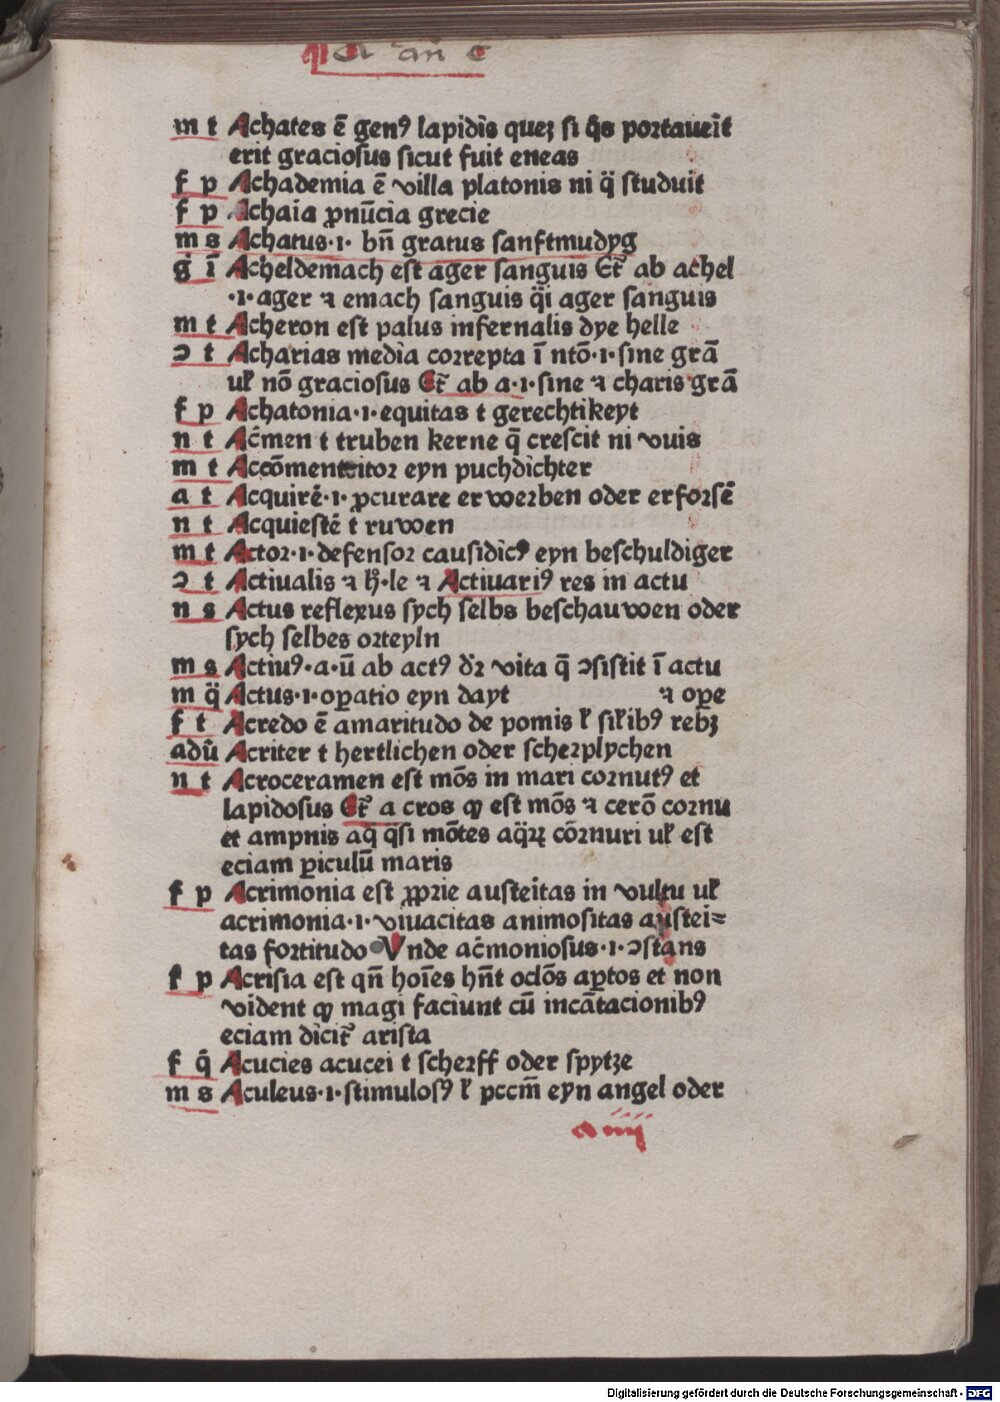 m t Achates ē genꝰ lapidis queꝫ si q̄s portaueīt
erit graciosus sicut fuit eneas
f p Achademia ē villa platonis ni q̄ studuit
f p Achaia ꝓnūcia grecie
m s Achatus·ı· bn̄ gratus sanftmudyg
g ī Acheldemach est ager sanguis Et᷑ ab achel
·ı·ager ⁊ emach sanguis q̈i ager sanguis
m t Acheron est palus infernalis dye helle
ↄ t Acharias media correpta ī ntō·ı·sine grā
ul̕ nō graciosus Et᷑ ab a·ı·sine ⁊ charis grā
f p Achatonia·ı·equitas t gerechtikeyt
n t Ac̄men t truben kerne q̄ crescit ni vuis
m t Accōmentritor eyn puchdichter
a t Acquirē·ı·ꝓcurare erwerben oder erforsē
n t Acquiestē t ruwen
m t Actor·ı·defensor causidicꝰ eyn beschuldiger
ↄ t Actiualis ⁊ h̄·le ⁊ Actiuariꝰ res in actu
n s Actus reflexus sych selbs beschauwen oder
sych selbes orteyln
m s Actiuꝰ·a·ū ab actꝰ dr̄ vita q̄ ↄsistit ī actu
m q̈ Actus·ı·oꝑatio eyn dayt ⁊ oꝑe
f t Acredo ē amaritudo de pomis l̕ sil̕ibꝰ rebꝫ
adū Acriter t hertlichen oder scherplychen
n t Acroceramen est mōs in mari cornutꝰ et
lapidosus Et᷑ a cros ꝙ est mōs ⁊ cerō cornu
et ampnis aq̄ q̄si mōtes aq̈ꝝ cōrnuri ul̕ est
eciam ꝑiculū maris
f p Acrimonia est ꝓprie austeītas in vultu ul̕
acrimonia·ı·viuacitas animositas austei⸗
tas fortitudo Vnde ac̄moniosus·ı·ↄstans
f p Acrisia est qn̄ hoīes hn̄t oclōs aꝑtos et non
vident ꝙ magi faciunt cū incātacionibꝰ
eciam dicit᷑ arista
f q̄ Acucies acucei t scherff oder spytze
m s Aculeus·ı·stimulosꝰ l̕ pccm̄ eyn angel oder
a iiij
Digitalisierung gefördert durch die Deutsche Forschungsgemeinschaft - DFG